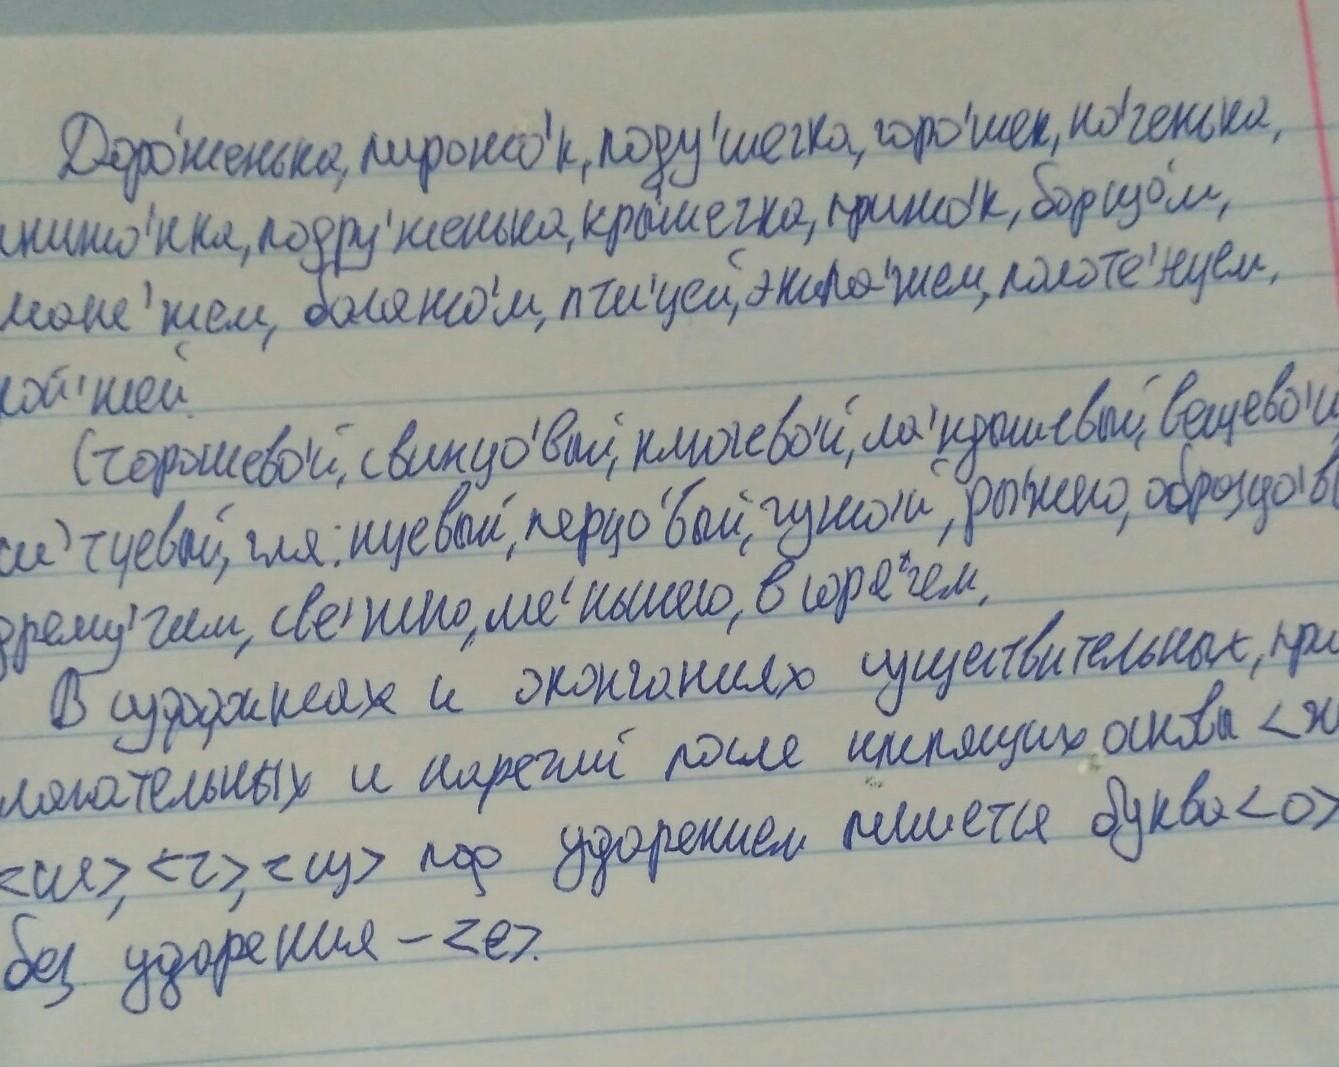 Доро'женька, пирожо'к, поду'шечка, горо'шек, но'женька,
книжо'нка, подру'женька, кры'шечка, прыжо'к, борщо'м,
мане'жем, багажо'м, пти'цей, экипа'жем, полоте'нцем,
(Сторожево'й, свинцо'вый, ключево'й, ла'ндышевый, вещево'й
си'тцевый, гля'нцевый, перцо'вый, чужо'й, ры'жего, образцо'в
дрему'чим, све'жего, ме'ньшего, в горя'чем,
В суффиксах и окончаниях существительных, при
лагательных и наречий после шипящих основы <ж
<ш>, <ч>, <щ> под ударением пишется буква <о>
без ударения – <е>.